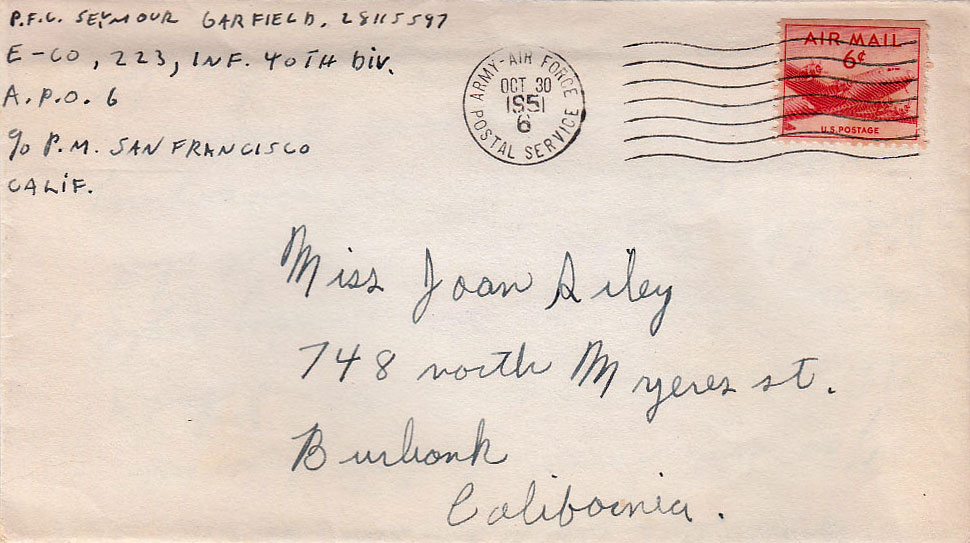 P.F.C. SEYMOUR GARFIELD, 28115597
E-CO, 223, INF. 40TH DIV.
A.P.O. 6
c/o P.M. SAN FRANCISCO
CALIF.
ARMY-AIR FORCE POSTAL SERVICE
OCT 30
1951
6
AIR MAIL
6¢
U.S. POSTAGE
Miss Joan Siley
748 north Myeres st.
Burbank
California.